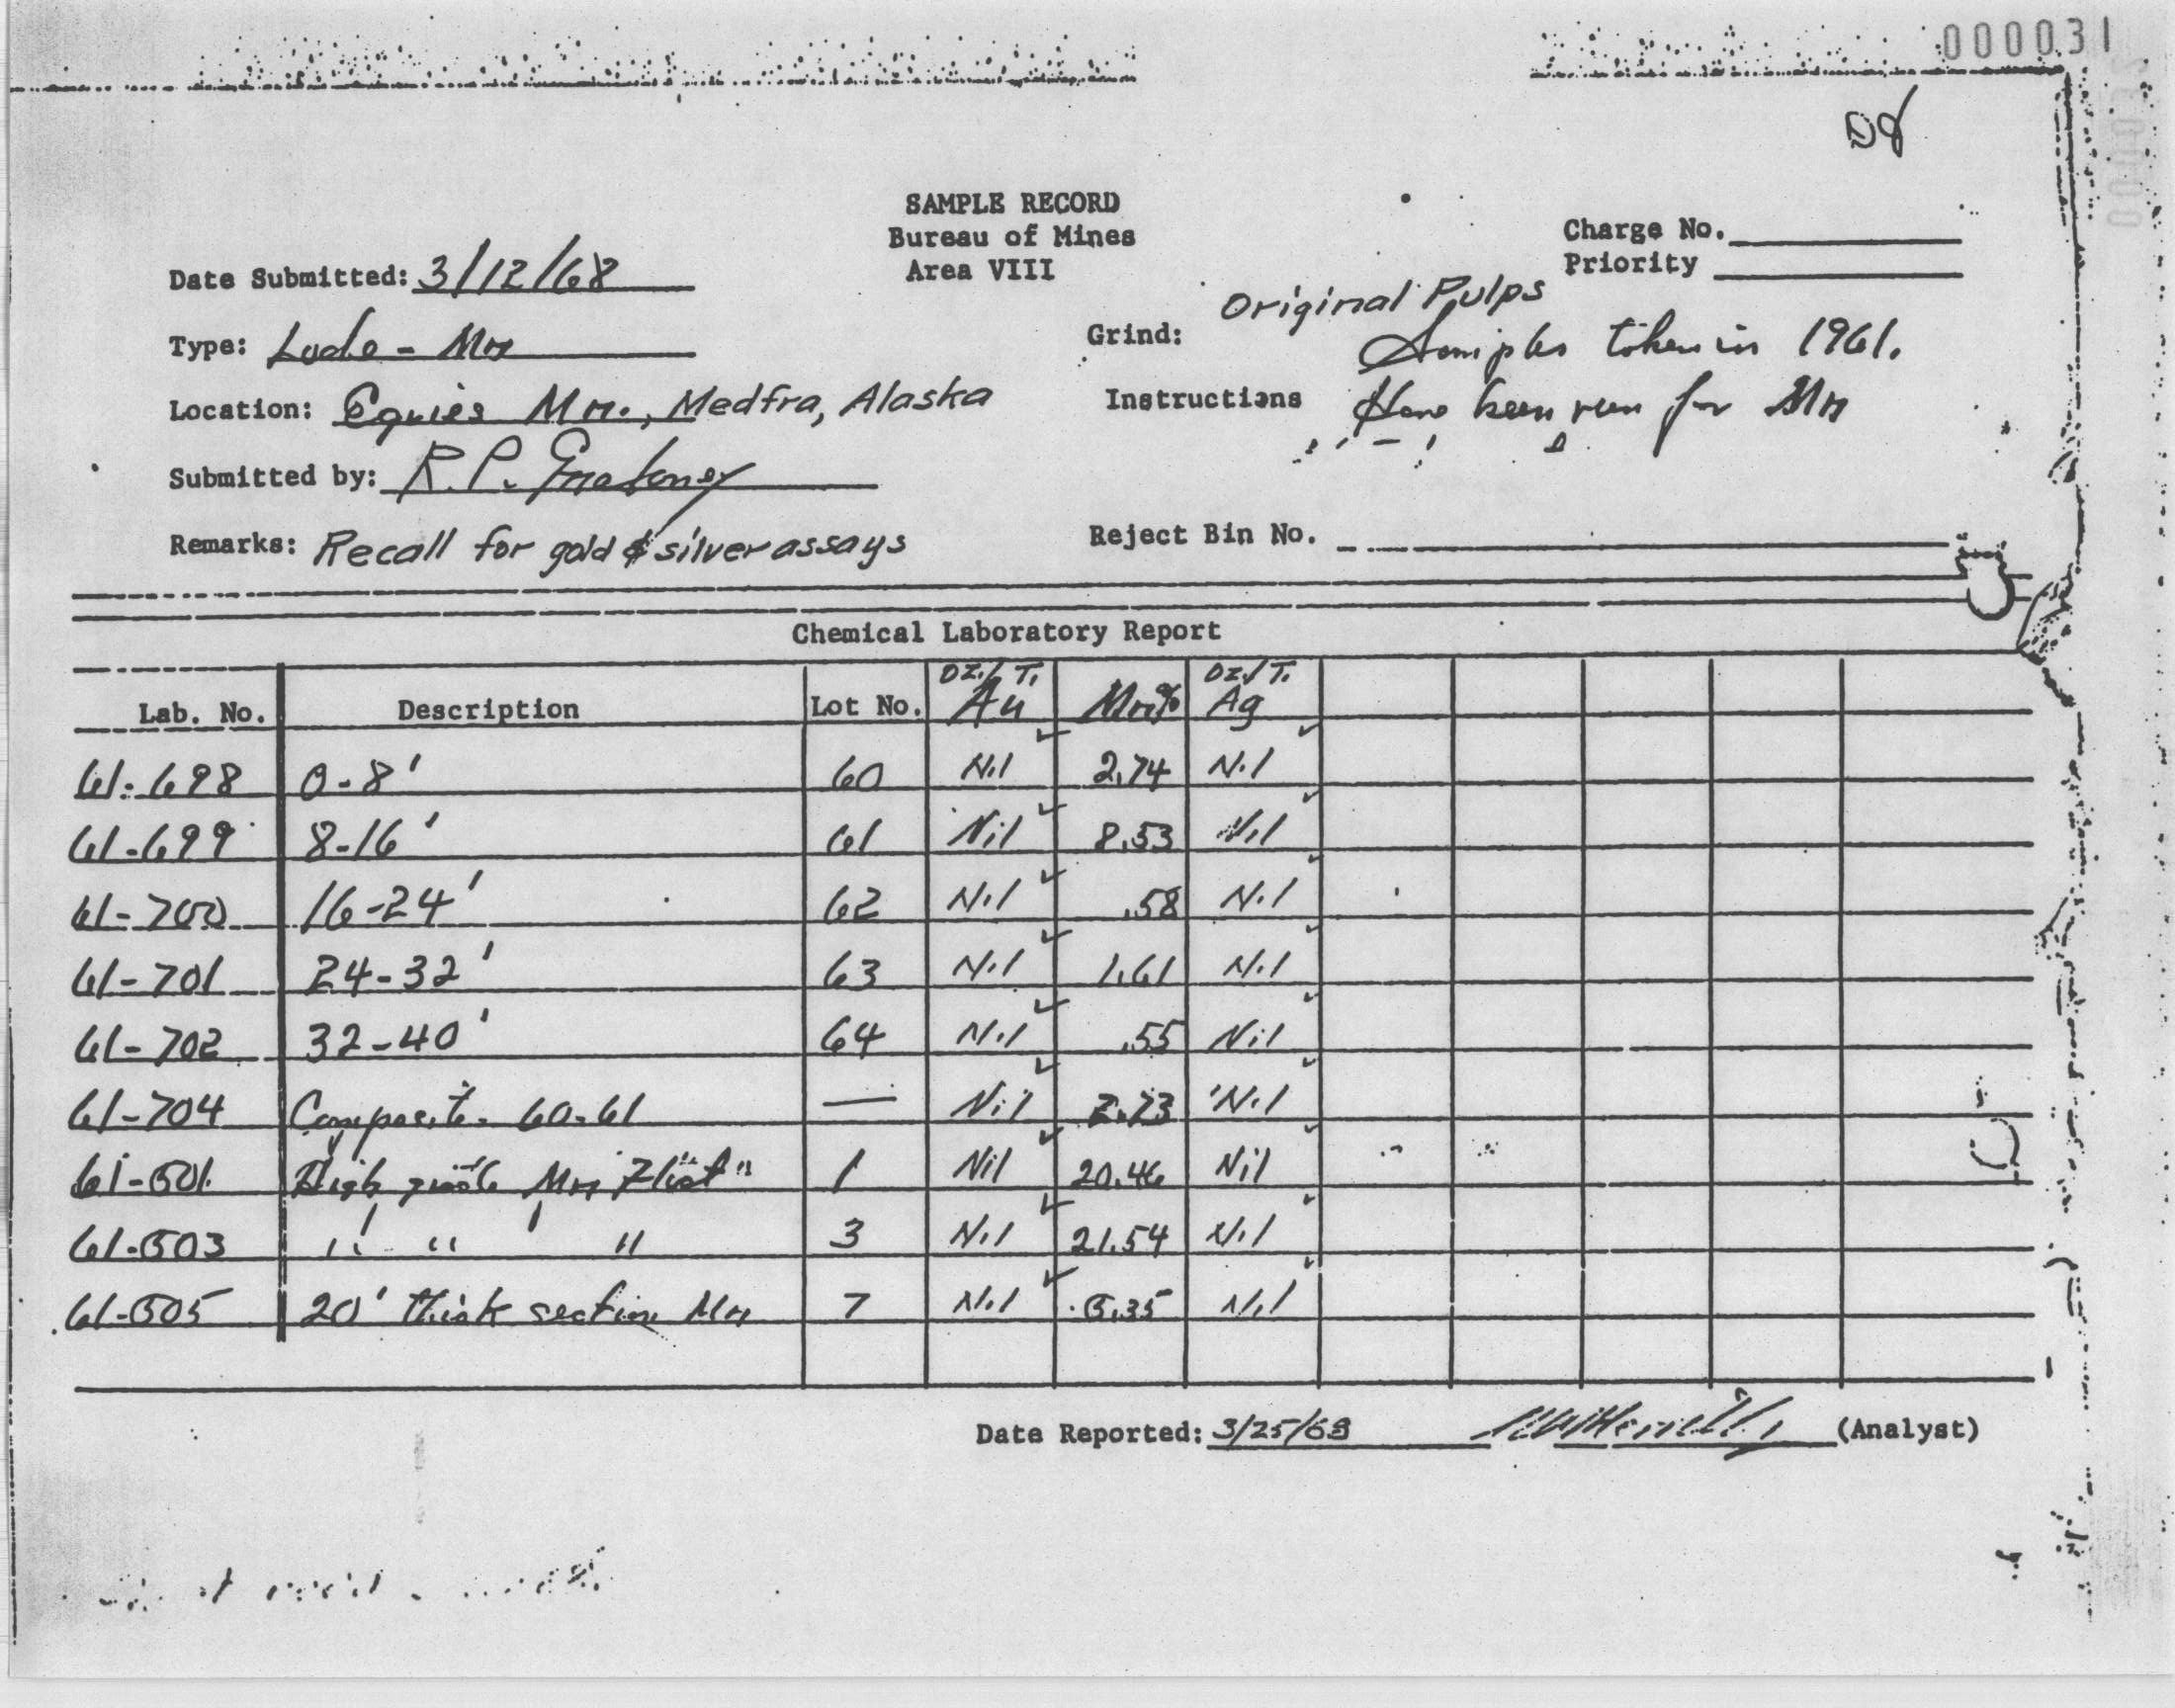 000031
SAMPLE RECORD
Bureau of Mines
Area VIII
Charge No.
Priority
Date Submitted: 3/12/68
Original Pulps
Type: Lode - Mn
Grind: Samples taken in 1961.
Location: Mn., Medfra, Alaska
Instructions Have been run for Mn
Submitted by: R.P.
Remarks: Recall for gold & silver assays
Reject Bin No.
Chemical Laboratory Report
Lab. No. Description Lot No. OZ./T. Au Mn% OZ./T. Ag
61-698 0-8' 60 Nil 2.74 Nil
61-699 8-16' 61 Nil 8.53 Nil
61-700 16-24' 62 Nil .58 Nil
61-701 24-32' 63 Nil 1.61 Nil
61-702 32-40' 64 Nil .55 Nil
61-704 Composite 60-61 — Nil Nil
High grade Mn Float" 1 Nil 20.46 Nil
" " " 3 Nil 21.54 Nil
20' thick section Mn 7 Nil Nil
Date Reported: 3/25/68 (Analyst)